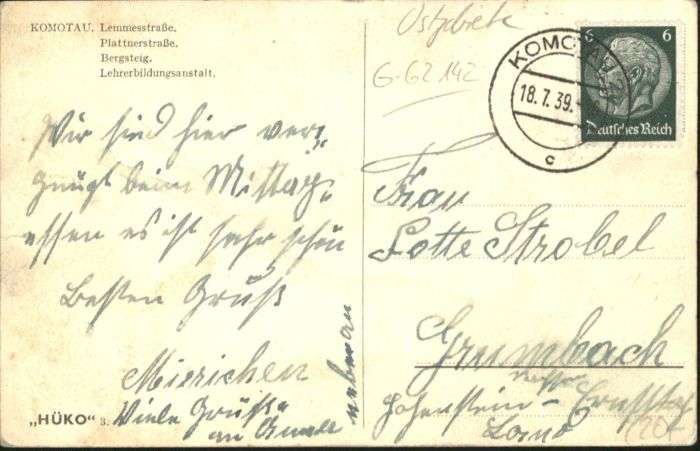 KOMOTAU. Lemmesstraße.
Plattnerstraße.
Bergsteig.
Lehrerbildungsanstalt.
Ostgebiete
G-G2 142
KOMOTAU
18.7.39.
c
6 6
Deutsches Reich
Wir sind hier ver-
gnügt beim Mittag-
essen es ist sehr schön
Besten Gruß
Mierichen
Viele Grüße
an
Frau
Lotte Strobel
Grumbach
Hohenstein-Ernstthal
Land
„HÜKO“ 3.